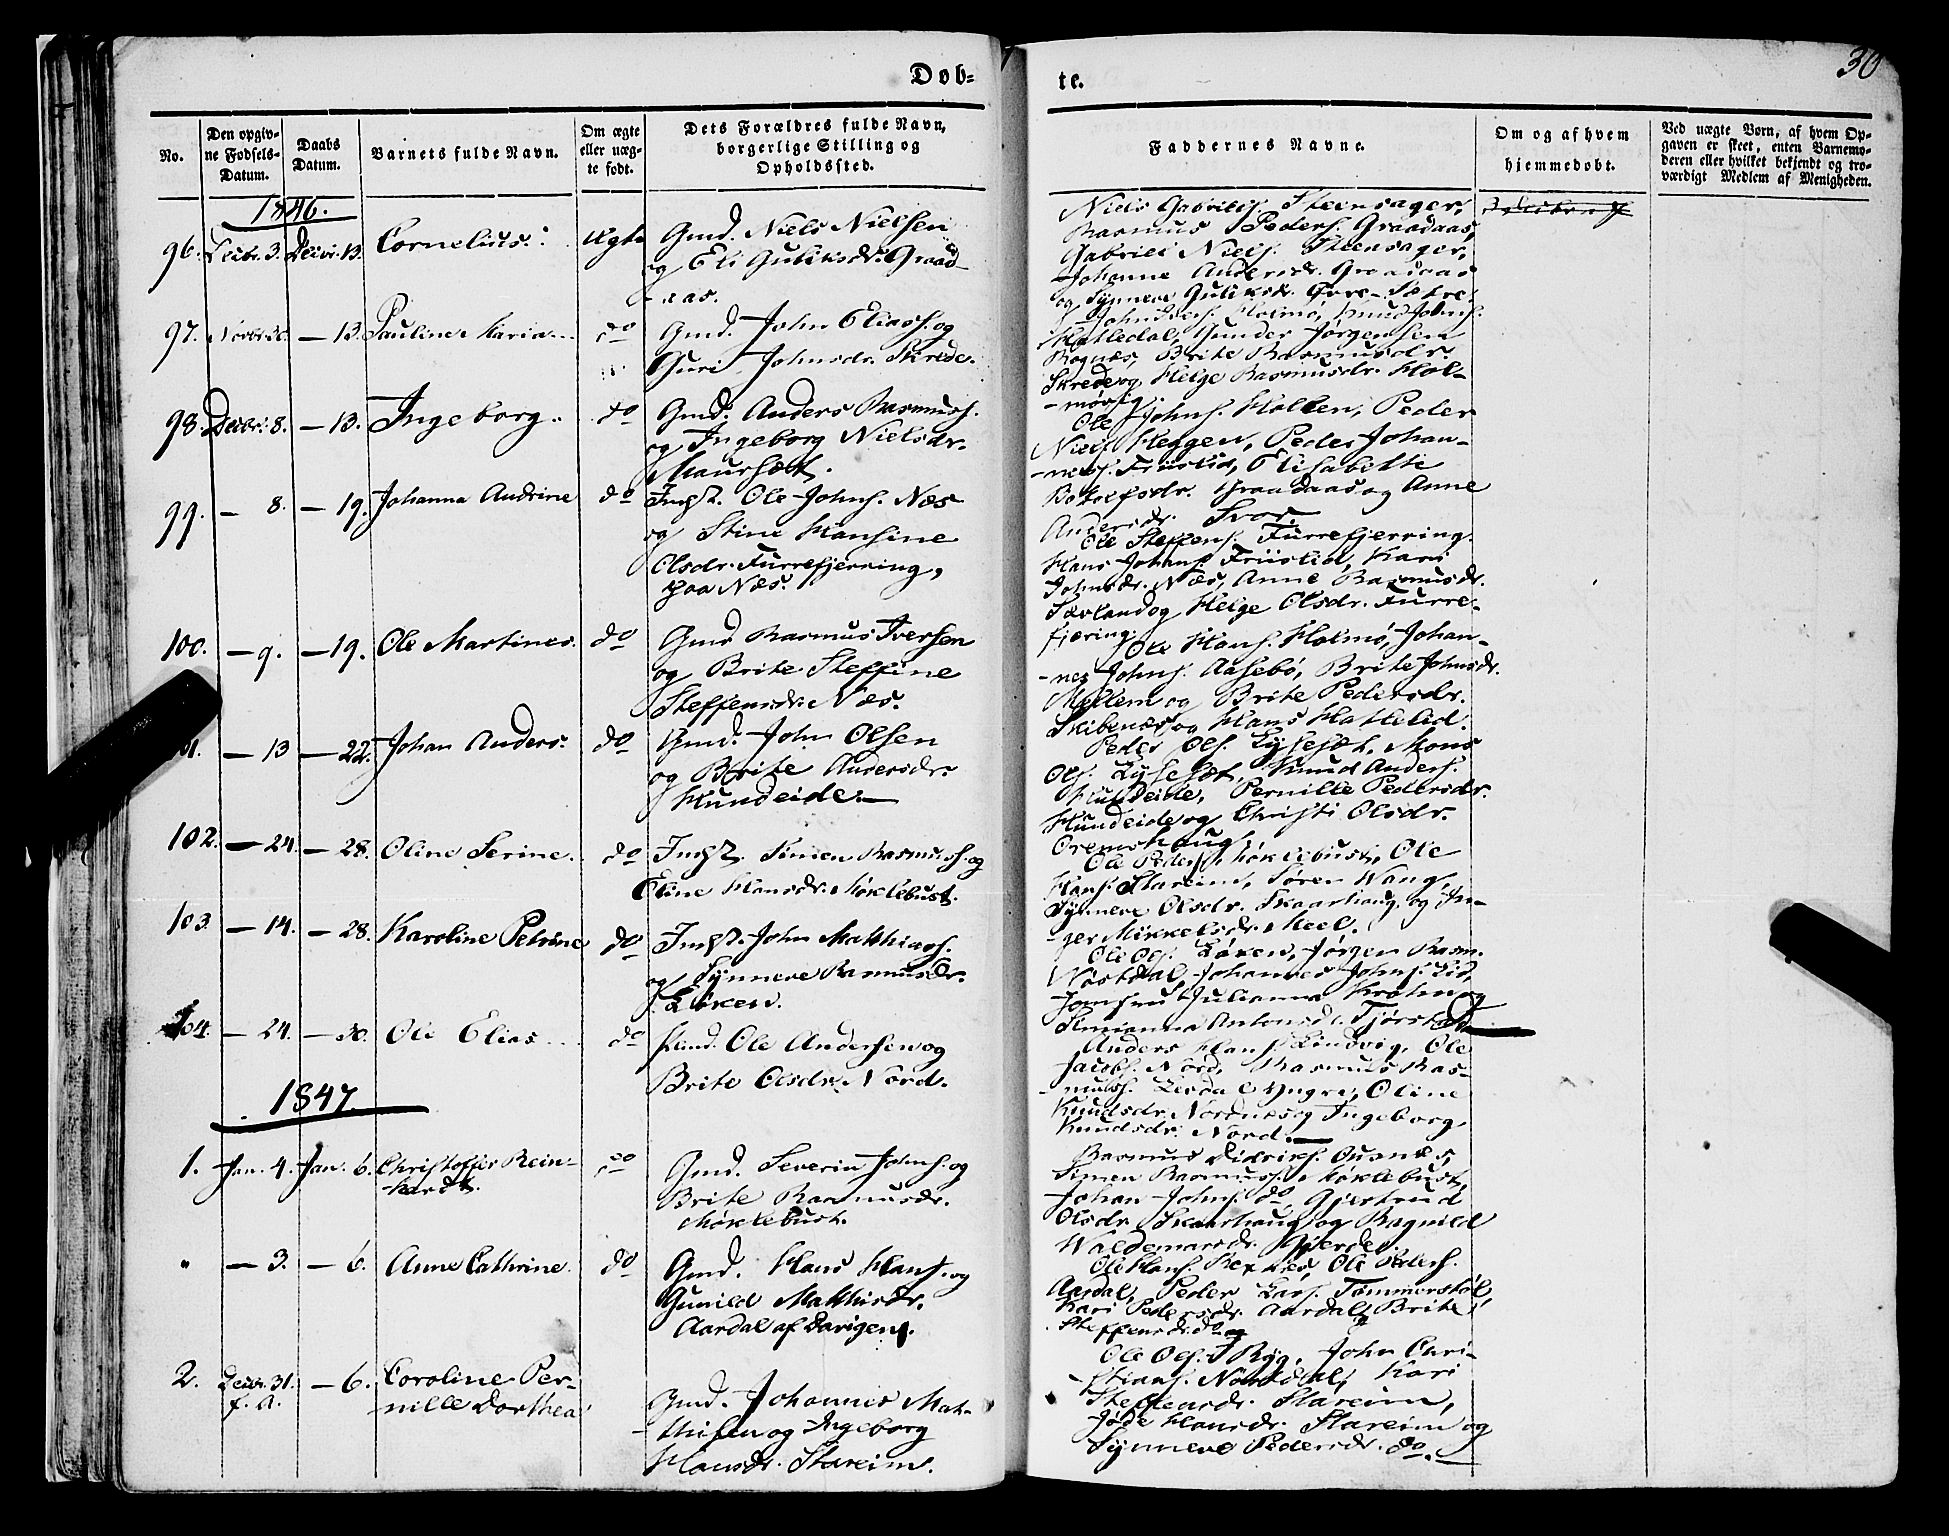 Døb=
te.
30
No.
Den opgiv-
ne Fødsels-
Datum.
Daabs
Datum.
Barnets fulde Navn.
Om ægte
eller uæg-
te født.
Dets Forældres fulde Navn,
borgerlige Stilling og
Opholdssted.
Faddernes Navne.
Om og af hvem
hjemmedøbt.
Ved uægte Børn, af hvem Op-
gaven er skeet, enten Barnemo-
deren eller hvilket bekjendt og tro-
værdigt Medlem af Menigheden.
1846.
96. Decbr. 3. Decbr. 13. Cornelius. Ægte Gmd. Niels Nielsen
og Eli Guliksdr. Graad-
-aas.
Niels Gabriels. Steensager,
Rasmus Peders. Graadaas,
Gabriel Niels. Steensager,
Johanne Andersdr. Graadaas
og Synneve Guliksdr.
97. — 13. Pauline Maria do Gmd. John Eliass. og
Guri Johnsdr. Skrede.
Holmø, Knud Johns.
Hatledal, Gunder Jørgensen
Rognæs, Brite Rasmusdr.
Skrede og Helge Rasmusdr. Hol-
-mørig.
98. Decbr. 8. — 13. Ingeborg. do Gmd. Anders Rasmuss.
og Ingeborg Nielsdr.
Maursæt.
Ole Johns. Holten, Peder
Niels. Heggen, Peder Johan-
-ness. Friislid, Elisabeth
Graadaas og Anne
Andersdr. Svor.
99. — 8. — 19. Johanna Andrine do Indst. Ole Johns. Næs
og Stine Hansine
Olsdr. Furrefjerring,
paa Næs.
Ole Steffens. Furrefjerring.
Hans Johans. Friislid, Kari
Johnsdr. Næs, Anne Rasmusdr.
og Helge Olsdr. Furre-
fjæring.
100. — 9. — 19. Ole Martines. do Gmd Rasmus Iversen
og Brite Steffine
Steffensdr. Næs.
Ole Hans. Holmø, Johan-
-nes Johns. Aasebø, Brite Johnsdr.
Mellem og Brite Pedersdr.
Skibenæs og Hans Hatlelid.
— 13 — 22. Johan Anders. do Gmd. John Olsen
og Brite Andersdr.
Hundeide.—
Peder Ols. Lysesæt, Mons
Ols. Lysesæt, Knud Anders.
Hundeide, Pernille Pedersdr.
Hundeide og Christi Olsdr.
Oremshaug.
102. — 24. — 28. Oline Serine. do Indst. Simen Rasmuss. og
Eline Hansdr. Møklebust.
Ole Peders. Møklebust, Ole
Hans. Stareim, Søren Wang,
Synneve Olsdr. Skaarhaug og In-
-ger Mikkelsdr. Meel.
103. — 14. — 28. Karoline Petrine do Indst. John Matthiass.
og Synneve Rasmusdr.
Løken.
Ole Ols. Løken, Jørgen Rasm.
Nøstdal, Johannes Johns. Lid,
Jomfru Julianna Krohn og
Simianna Antonsdr.
104. — 24. — 30. Ole Elias do Ole Andersen og
Brite Olsdr. Nord.
Anders Hans. Lindvig, Ole
Jacobs. Nord, Rasmus Ras-
-muss. Leirdal Yngre, Oline
Knudsdr. Nordnes og Ingeborg
Knudsdr. Nord.—
1847.
1. Jan. 4. Jan. 6. Christoffer Rein-
-hardt. do Gmd. Severin Johns. og
Brite Rasmusdr.
Møklebust.
Rasmus Didriks. Ousnes,
Simen Rasmuss. Møklebust,
Johan Johns. do, Gjertrud
Olsdr. Skaarhaug og Ragnild
Waldemarsdr. Gjerde.
" — 3. — 6. Anne Cathrine. do Gmd. Hans Hans. og
Gunild Matthisdr.
Aardal af Davigen.
Ole Hans. Ole Peders.
Aardal, Peder Lars. Tømmerstøl,
Kari Pedersdr. Aardal, Brite
Steffensdr. do
2. Decbr. 31. — 6. Caroline Per-
f. A. -nille Dorthea
Gmd. Johannes Mat-
-thisen og Ingeborg
Hansdr. Stareim.
Ole Ols. Ryg, John Chri-
-stians. Nøstdal, Kari
Steffensdr. Stareim,
Hansdr. Stareim og
Synneve Pedersdr. do.